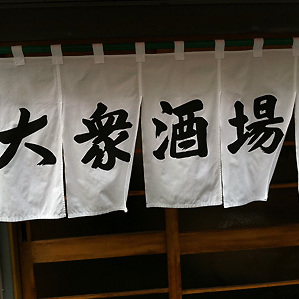 大衆酒場